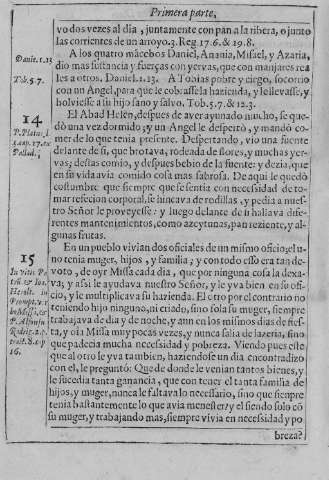 Primera parte,
vo dos vezes al dia, juntamente con pan a la ribera, o junto
las corrientes de vn arroyo. 3. Reg. 17.6. & 19.8.
A los quatro mācebos Daniel, Anania, Misael, y Azaria,
dio mas sustancia y fuerças con yervas, que con manjares rea
les a otros. Daniel. 1.13. A Tobias pobre y ciego, socorrio
con vn Angel, para que le cobrasse la hazienda, y le llevasse, y
bolviesse a su hijo sano y salvo. Tob. 5.7. & 12.3.
Daniel. 1.13
Tob. 5.7.
14
El Abad Helen, despues de aver ayunado mucho, se que-
dò vna vez dormido; y vn Angel le despertò, y mandò co
mer lo que tenia presente. Despertando, vio vna fuente
delante de si, que brotava, rodeada de flores, y muchas yer-
vas; destas comio, y despues bebio de la fuente: y dezia, que
en su vida avia comido cosa mas sabrosa. De aqui le quedò
costumbre que siempre que se sentia con necessidad de to-
mar refeccion corporal, se hincava de rodillas, y pedia a nues-
tro Señor le proveyesse: y luego delante de si hallava dife-
rentes mantenimientos, como azeytunas, pan reziente, y al-
gunas frutas.
15
En vn pueblo vivian dos oficiales de vn mismo oficio; el v-
no tenia muger, hijos, y familia; y con todo esso era tan de-
voto, de oyr Missa cada dia, que por ninguna cosa la dexa-
va; y assi le ayudava nuestro Señor, y le yva bien en su ofi-
cio, y le multiplicava su hazienda. El otro por el contrario no
teniendo hijo ninguno, ni criado, sino sola su muger, siempre
trabajava de dia y de noche, y aun en los mismos dias de fies-
ta, y oìa Missa muy pocas vezes, y nunca salia de lazeria, sino
que padecia mucha necessidad y pobreza. Viendo pues este
que al otro le yva tambien, haziendose vn dia encontradizo
con el, le preguntò: Que de donde le venian tantos bienes, y
le sucedia tanta ganancia, que con tener el tanta familia de
hijos, y muger, nunca le faltava lo necessario, sino que siempre
tenia bastantemente lo que avia menester? y el siendo solo cō
su muger, y trabajando mas, siempre vivia en necessidad y po
breza?